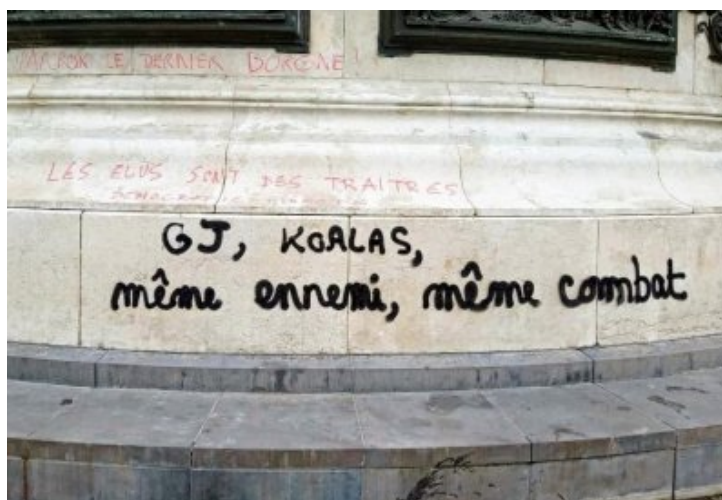 LE DERNIER BORGNE!
LES ELUS SONT DES TRAITRES
GJ, KOALAS,
même ennemi, même combat